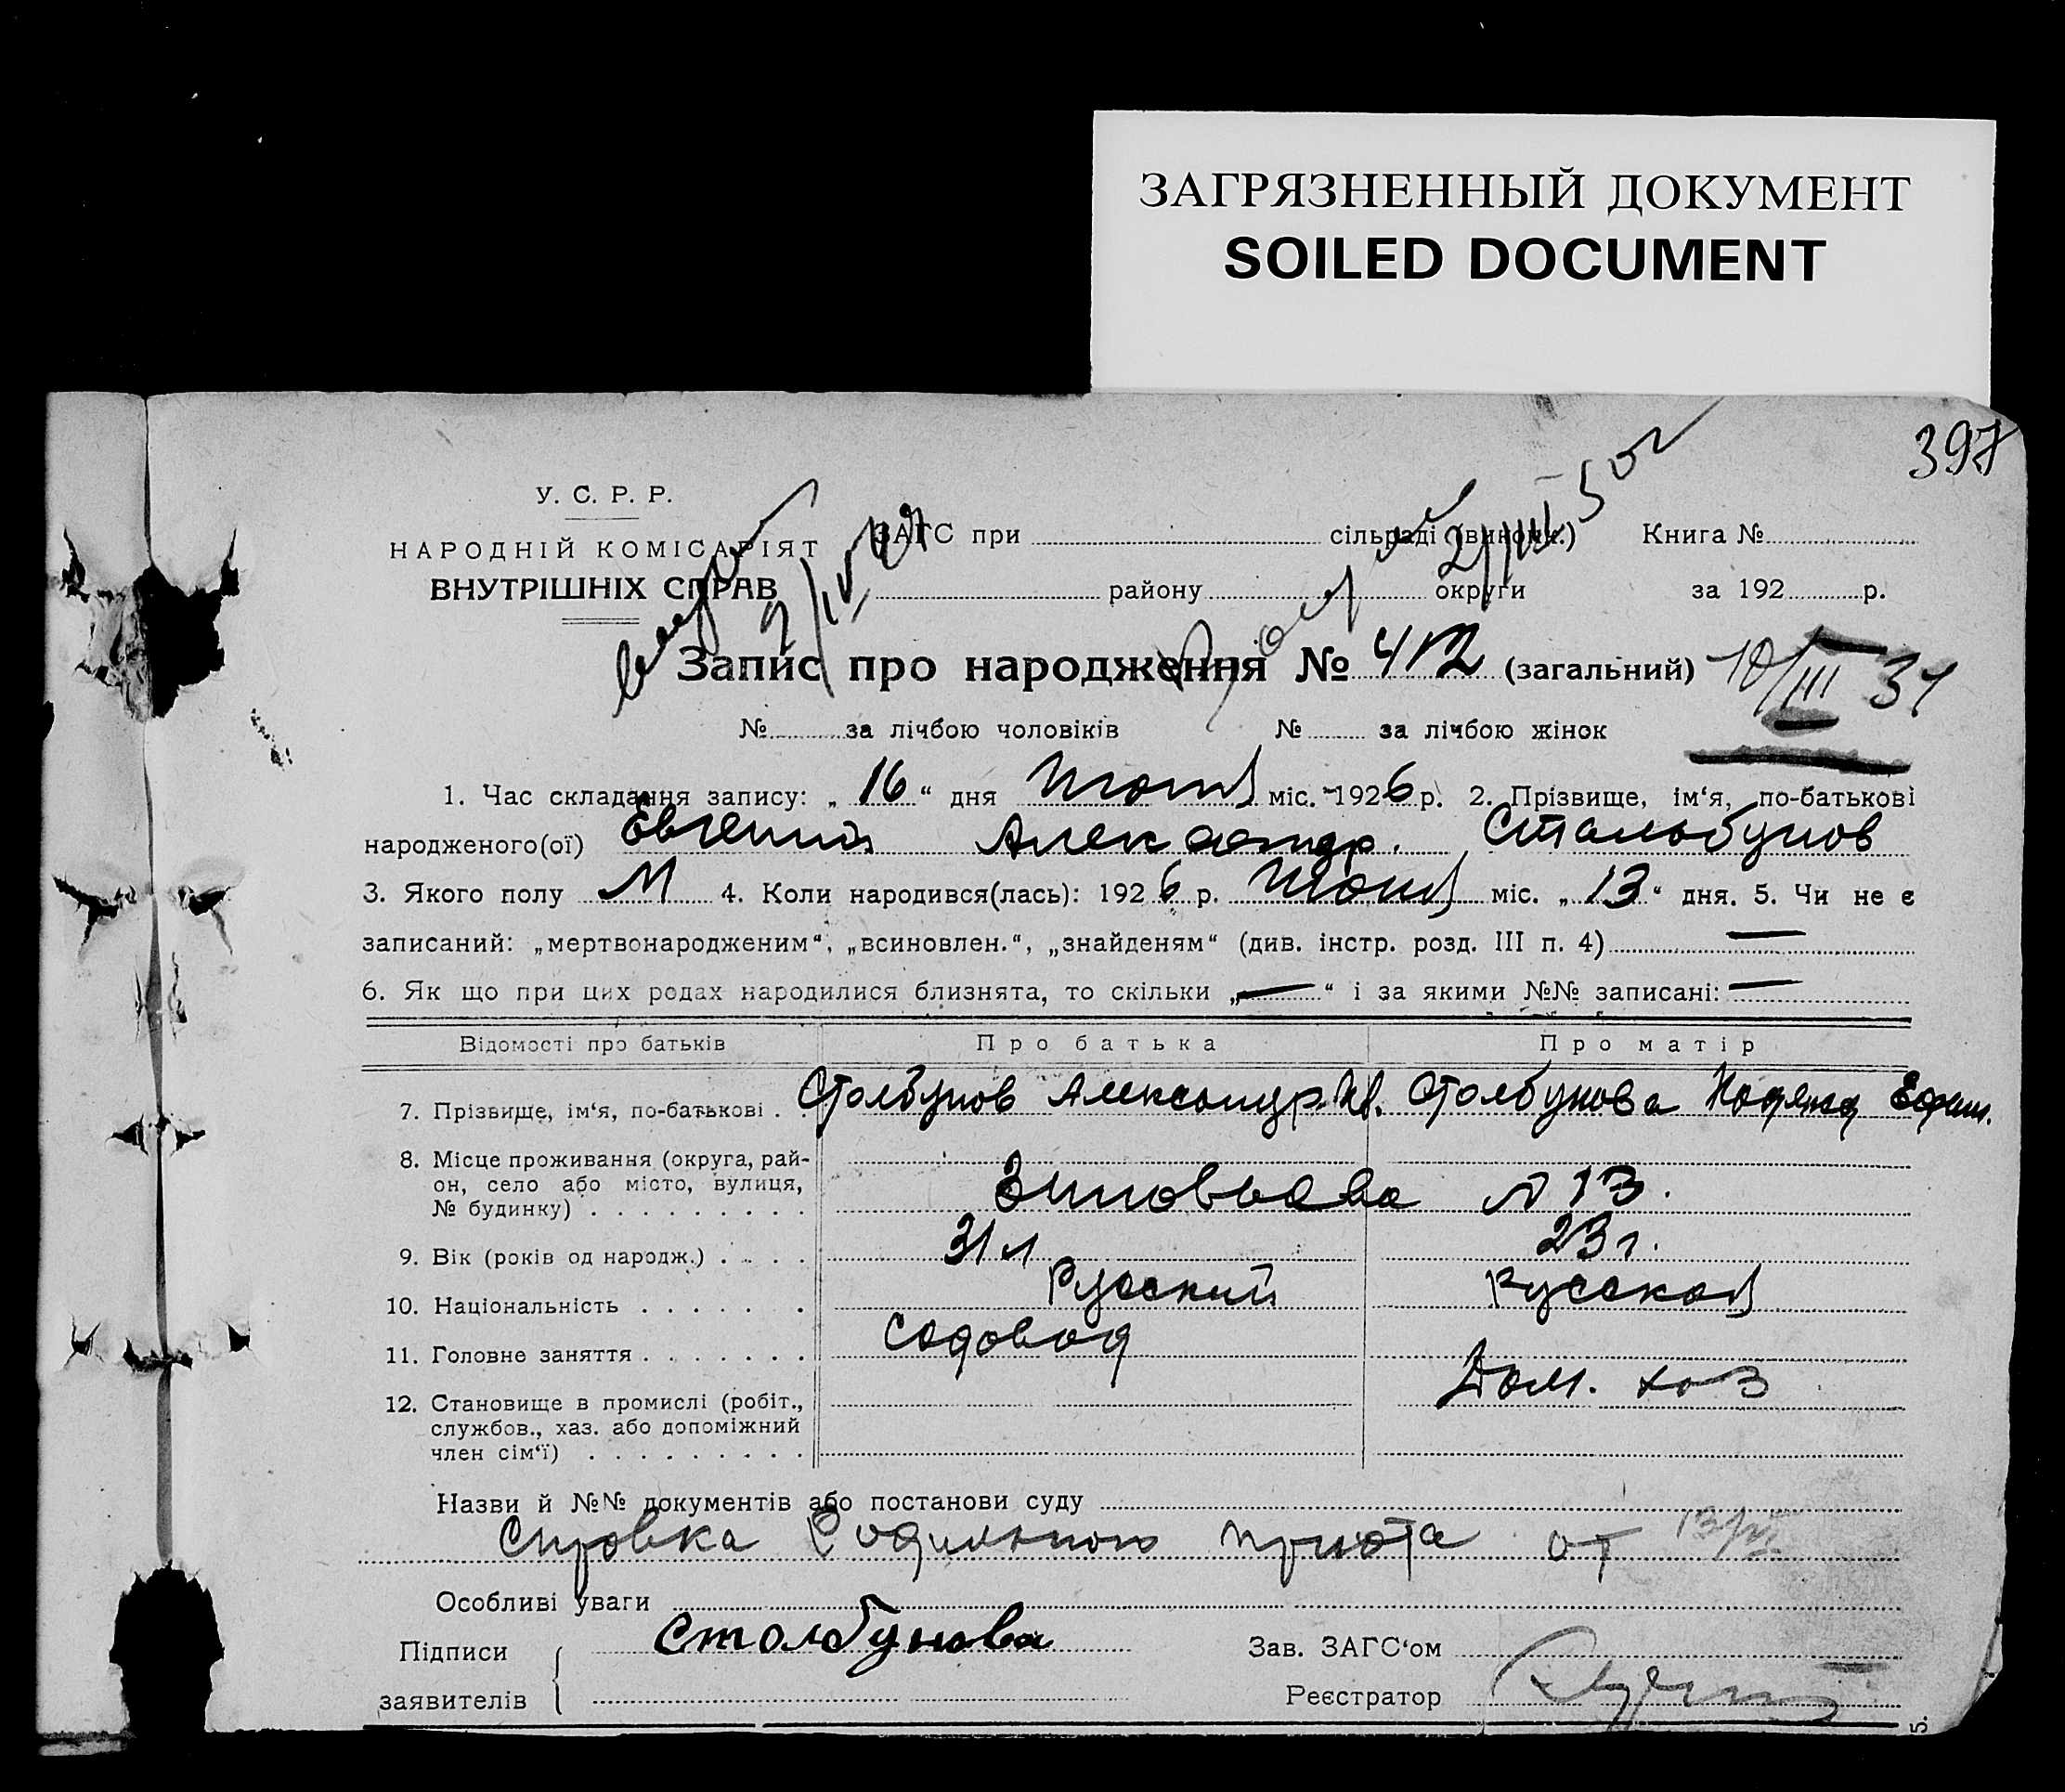 ЗАГРЯЗНЕННЫЙ ДОКУМЕНТ
SOILED DOCUMENT
397
У. С. Р. Р.
НАРОДНІЙ КОМІСАРІЯТ
ВНУТРІШНІХ СПРАВ
ЗАГС при сільраді (виконк.) Книга №
району округи за 192 р.
Запис про народження № 412 (загальний) 10/III 31
№ за лічбою чоловіків № за лічбою жінок
1. Час складання запису: „16“ дня Июня міс. 1926 р. 2. Прізвище, ім‘я, по-батькові
народженого(ої) Евгений Александр. Стальбунов
3. Якого полу М 4. Коли народився(лась): 1926 р. Июня міс. „13“ дня. 5. Чи не є
записаний: „мертвонародженим“, „всиновлен.“, „знайденям“ (див. інстр. розд. III п. 4) —
6. Як що при цих родах народилися близнята, то скільки „—“ і за якими №№ записані: —
Відомості про батьків Про батька Про матір
7. Прізвище, ім‘я, по-батькові . Столбунов Александр. Столбунова Надежд Ефим.
8. Місце проживання (округа, рай-
он, село або місто, вулиця,
№ будинку) Зиновьева № 13.
9. Вік (років од народж.) 31 л 23 г.
10. Національність Русский Русская
11. Головне заняття Садовод Дом. хоз
12. Становище в промислі (робіт.,
службов., хаз. або допоміжний
член сім‘ї)
Назви й №№ документів або постанови суду
Справка Родильного приюта от 13/VI
Особливі уваги
Підписи Столбунова Зав. ЗАГС‘ом
заявителів Реєстратор
5.